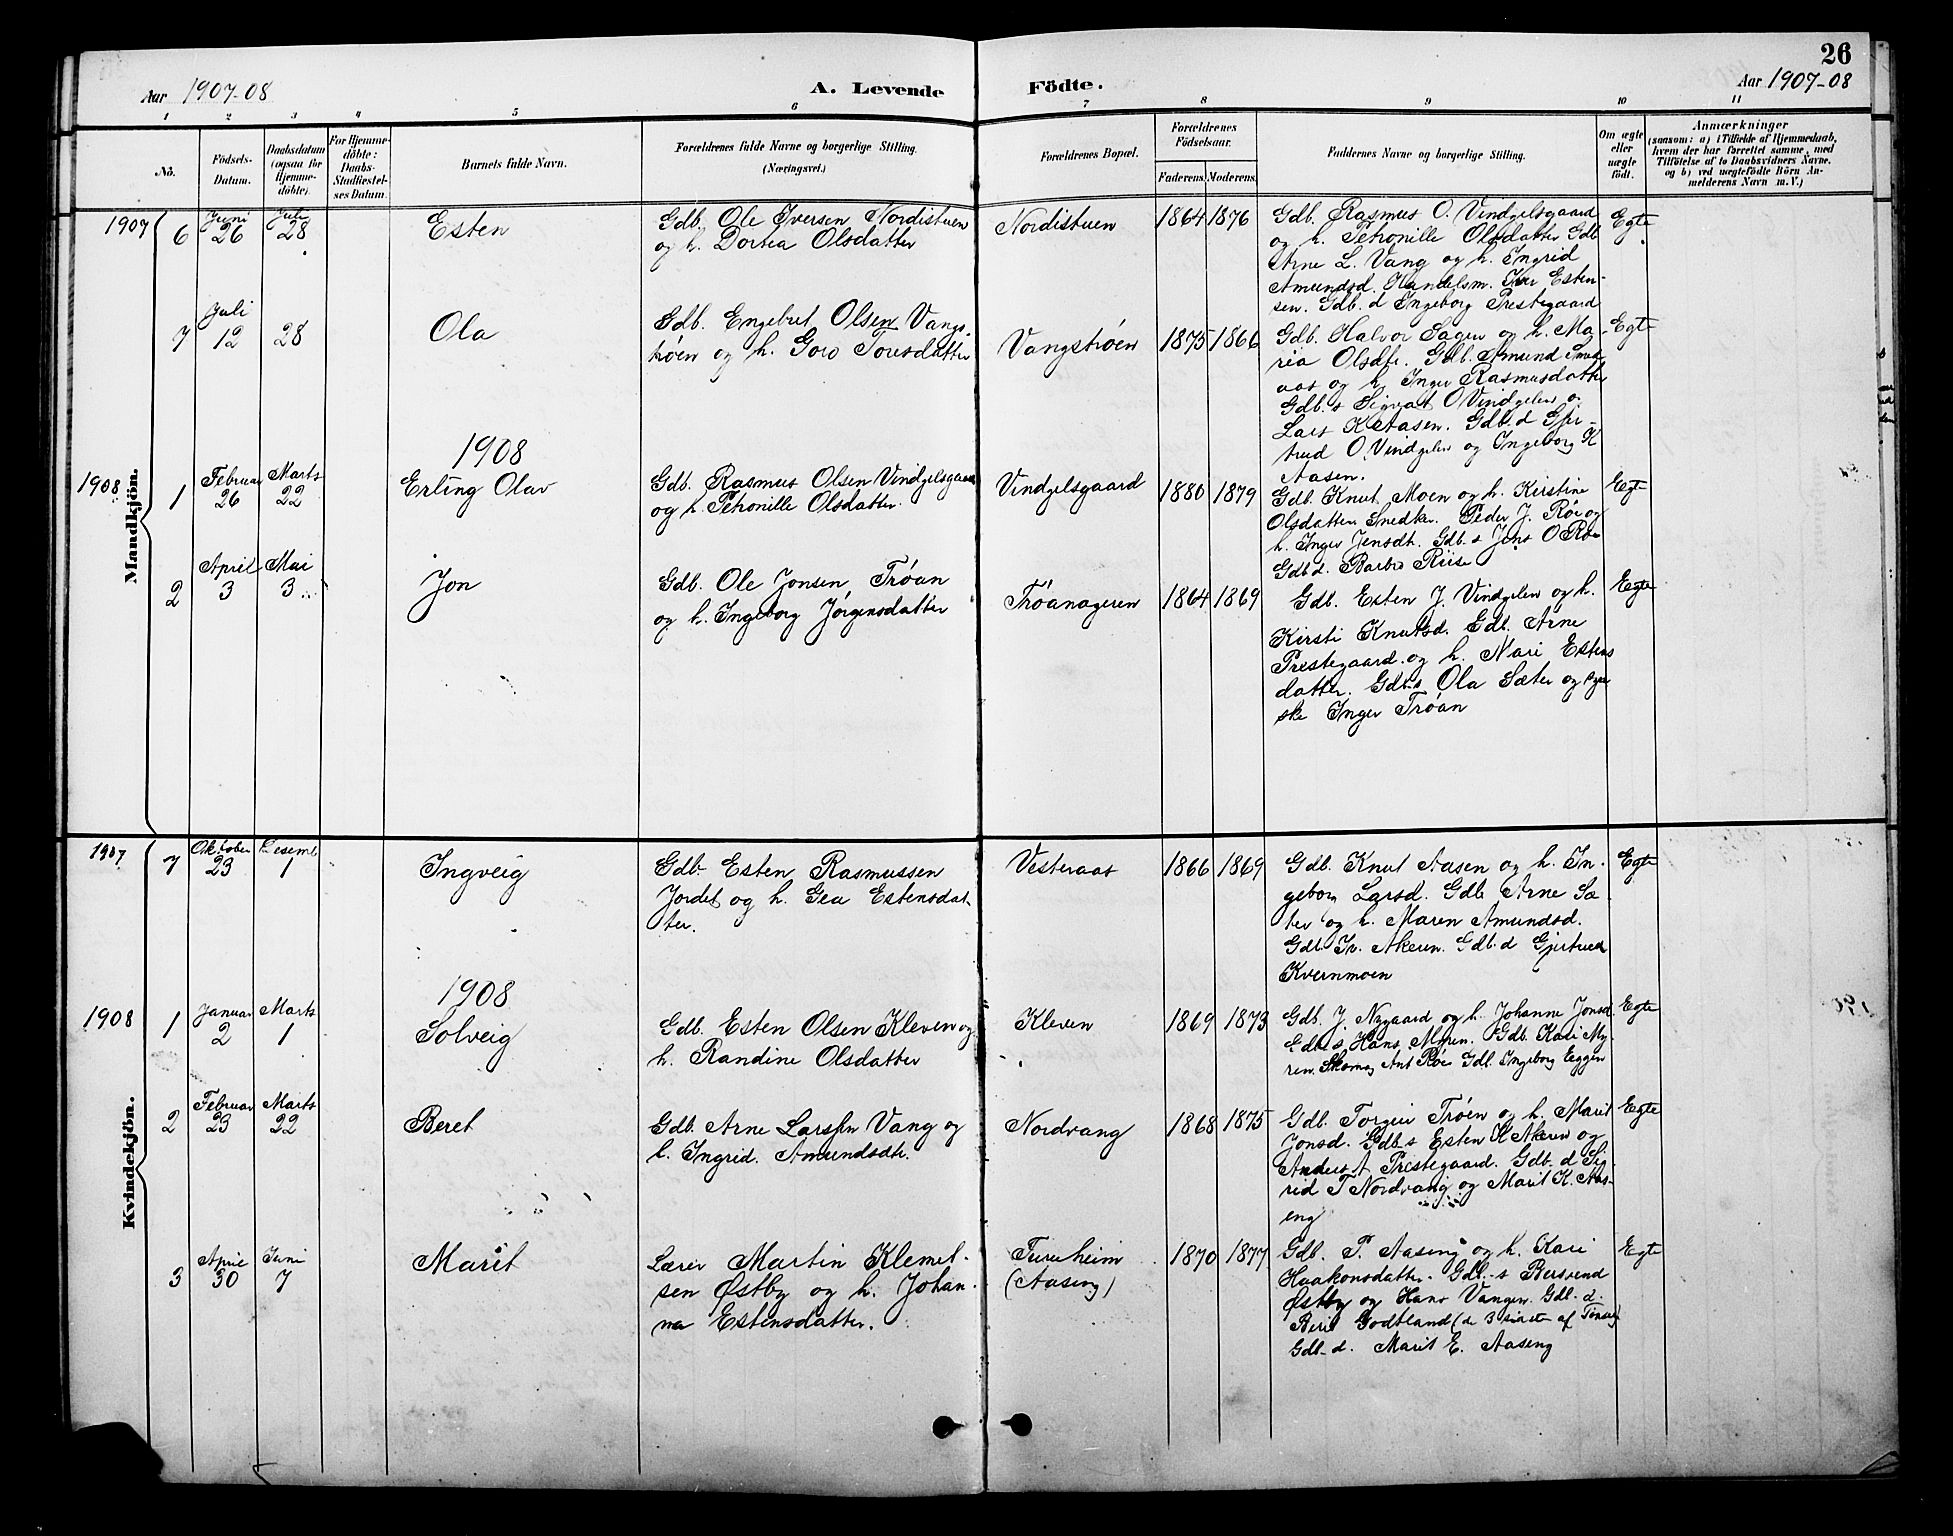 26
Aar 1907-08
A. Levende Födte.
Aar 1907-08
1 2 3 4 5 6 7 8 9 10 11
No.
Födsels-Datum.
Daabsdatum (ogsaa for Hjemme-döbte).
For Hjemme-döbte: Daabs-Stadfæstel-ses Datum.
Barnets fulde Navn.
Forældrenes fulde Navne og borgerlige Stilling.
(Næringsvei.)
Forældrenes Bopæl.
Forældrenes Födselsaar.
Faderens. Moderens.
Faddernes Navne og borgerlige Stilling.
Om ægte eller uægte födt.
Anmærkninger
(saasom: a) i Tilfælde af Hjemmedaab,
hvem der har forrettet samme, med
Tilföielse af to Daabsvidners Navne.
og b) ved uægtefödte Börn An-
melderens Navn m. V.)
Mandkjön.
1907
6
Juni 26
Juli 28
Esten
Gdb. Ole Iversen Nordistuen
og h. Dortea Olsdatter
Nordistuen
1864 1876
Gdb. Rasmus O. Vindgelsgaard
og h. Petronille Olsdatter Gdb
Arne L. Vang og h. Ingrid
Amundsd. Handelsm. Iver Esten-
sen. Gdb. d Ingeborg Prestegaard
Egte
7
Juli 12
28
Ola
Gdb. Engebret Olsen Vangs-
trøen og h. Goro Toresdatter
Vangstrøen
1875 1866
Gdb. Halvor Sagen og h. Ma-
ria Olsdtr. Gdb. Amund
aas og h. Inger Rasmusdatter
Gdb. s Sigvat O Vindgelen o
Lars K Aasen. Gdb. d Gjer-
trud O. Vindgelen og Ingeborg K
Aasen.
Egte
1908
1908
1
Februar 26
Marts 22
Erling Olav
Gdb. Rasmus Olsen Vindgelsgaard
og h. Petronille Olsdatter.
Vindgelsgaard
1880 1879
Gdb. Knut Moen og h. Kirstine
Olsdatter. Snedker. Peder J. Røe og
h. Inger Jensdtr. Gdb. s Jens O Røe
Gdb d. Barbro Riise
Egte
2
April 3
Mai 3
Jon
Gdb. Ole Jonsen Trøan
og h. Ingeborg Jørgensdatter
Trøanageren
1864 1869
Gdb. Esten J. Vindgelen og h.
Kirsti Knutsd. Gdb. Arne
Prestegaard og h. Mari Estens
datter. Gdb. s Ola Sæter og
ske Inger Trøan
Egte
Kvindekjön.
1907
7
Oktober 23
Desemb 1
Ingveig
Gdb. Esten Rasmussen
Jordet og h. Gea Estensdat-
ter.
Vesteraas
1866 1869
Gdb. Knut Aasen og h. In-
geborg Larsd. Gdb Arne Sæ-
ter og h. Maren Amundsd.
Gdb. Akeren. Gdb. d Gjertrud
Kvernmoen
Egte
1908
1908
1
Januar 2
Marts 1
Solveig
Gdb. Esten Olsen Kleven og
h. Randine Olsdatter
Kleven
1869 1873
Gdb. J. Nygaard og h. Johanne Jonsd.
Gdb. s Hans Myren. Gdb. Kari My-
ren. Skomag Ant Røe Gdb. Ingeborg Eggen
Egte
2
Februar 23
Marts 22
Beret
Gdb. Arne Larsen Vang og
h. Ingrid. Amundsdtr.
Nordvang
1868 1875
Gdb. Torgeir Trøen og h. Marit
Jonsd. Gdb. s Esten H Akeren og
Anders A. Prestegaard. Gdb. d Sig-
rid T Nordvang og Marit K. Aas-
eng
Egte
3
April 30
Juni 7
Marit
Lærer Martin Klemet-
sen Østby og h. Johan-
na Estensdatter.
Furuheim
(Aaseng)
1870 1877
Gdb. P. Aaseng og h. Kari
Haakonsdatter. Gdb. s Bersvend
Østby og Hans Vangen. Gdb. d.
Berit Godtland (de 3 sidste af Tønset)
Gdb. d. Marit E. Aaseng
Egte